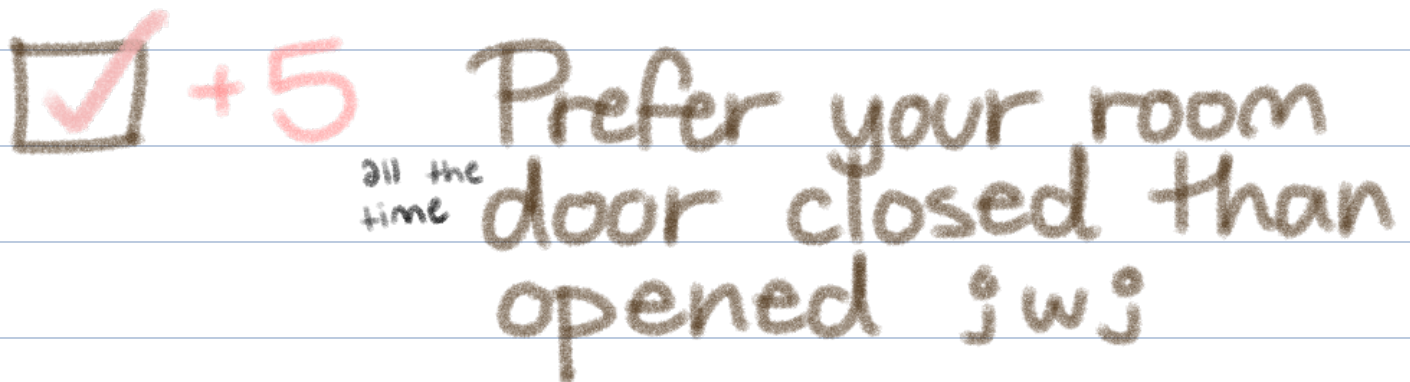 +5 Prefer your room
all the
time
door closed than
opened jwj